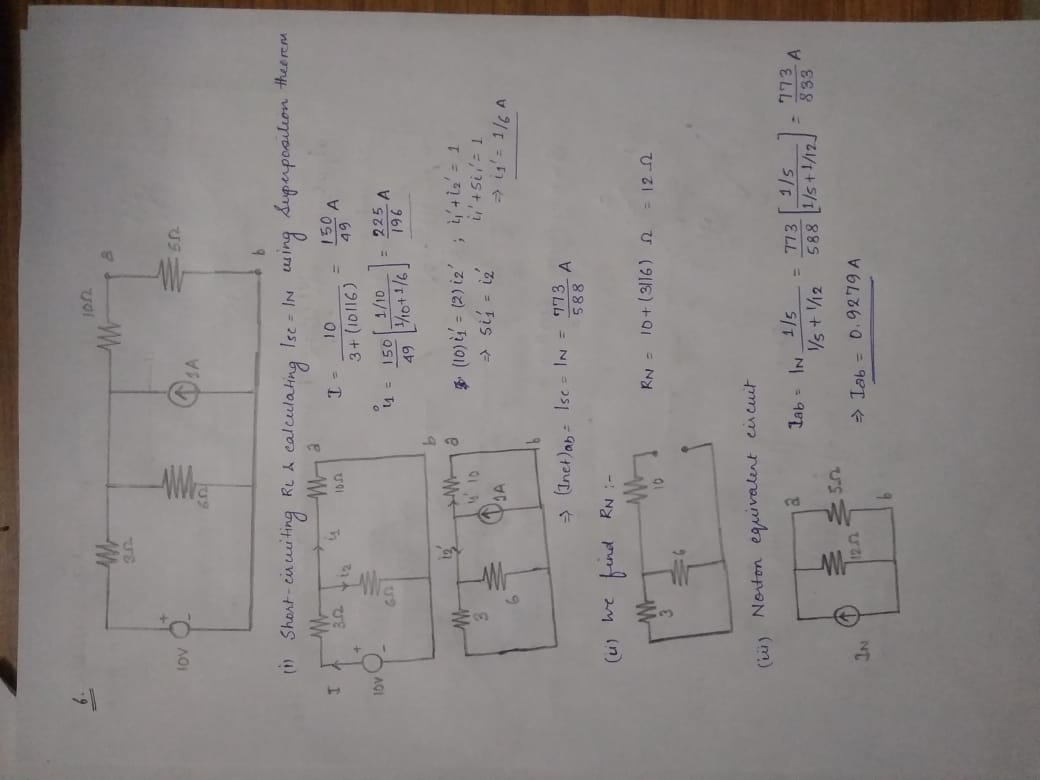 6.
10V
+
-
3Ω
6Ω
1A
10Ω
a
5Ω
b
(i) Short-circuiting RL & calculating Isc = IN using Superposition theorem
I
10V
+
-
3Ω
i2
6Ω
i1
10Ω
a
b
I = 10 / 3+(10||6) = 150/49 A
i1 = 150/49 [ 1/10 / 1/10+1/6 ] = 225/196 A
3
6
i2'
i1'
10
1A
a
b
(10)i1' = (2)i2' ; i1'+i2' = 1
⇒ 5i1' = i2'   i1'+5i1' = 1
⇒ i1' = 1/6 A
⇒ (Inet)ab = Isc = IN = 773/588 A
(ii) We find RN :-
3
6
10
RN = 10+(3||6) Ω = 12 Ω
(iii) Norton equivalent circuit
IN
12Ω
5Ω
a
b
Iab = IN 1/5 / 1/5+1/12 = 773/588 [ 1/5 / 1/5+1/12 ] = 773/833 A
⇒ Iab = 0.9279 A